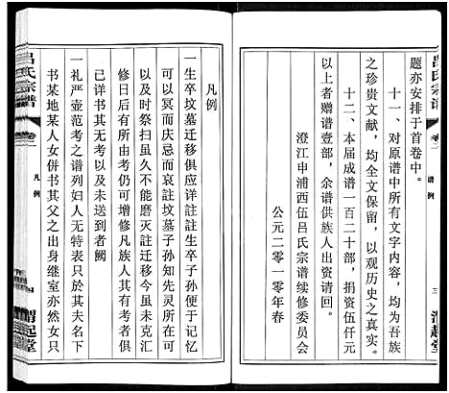 題亦安排于首卷中。
十一、对原谱中所有文字内容，均为吾族
之珍贵文献，均全文保留，以观历史之真实。
十二、本届成谱一百二十部，捐资伍仟元
以上者赠谱壹部，余谱供族人出资请回。
澄江申浦西伍吕氏宗谱续修委员会
公元二零一零年春
凡例
一生卒坟墓迁移俱应详註註生卒子孙便于记忆
可以冥而庆忌而哀註坟墓子孙知先灵所在可
以及时祭扫虽久不能磨灭註迁移今虽未克汇
修日后有所由考仍可增修凡族人其有考者俱
已详书其无考以及未送到者阙
一礼严壶范考之谱列妇人无特表只於其夫名下
书某地某人女併书其父之出身继室亦然女只
吕氏宗谱
卷一
凡例